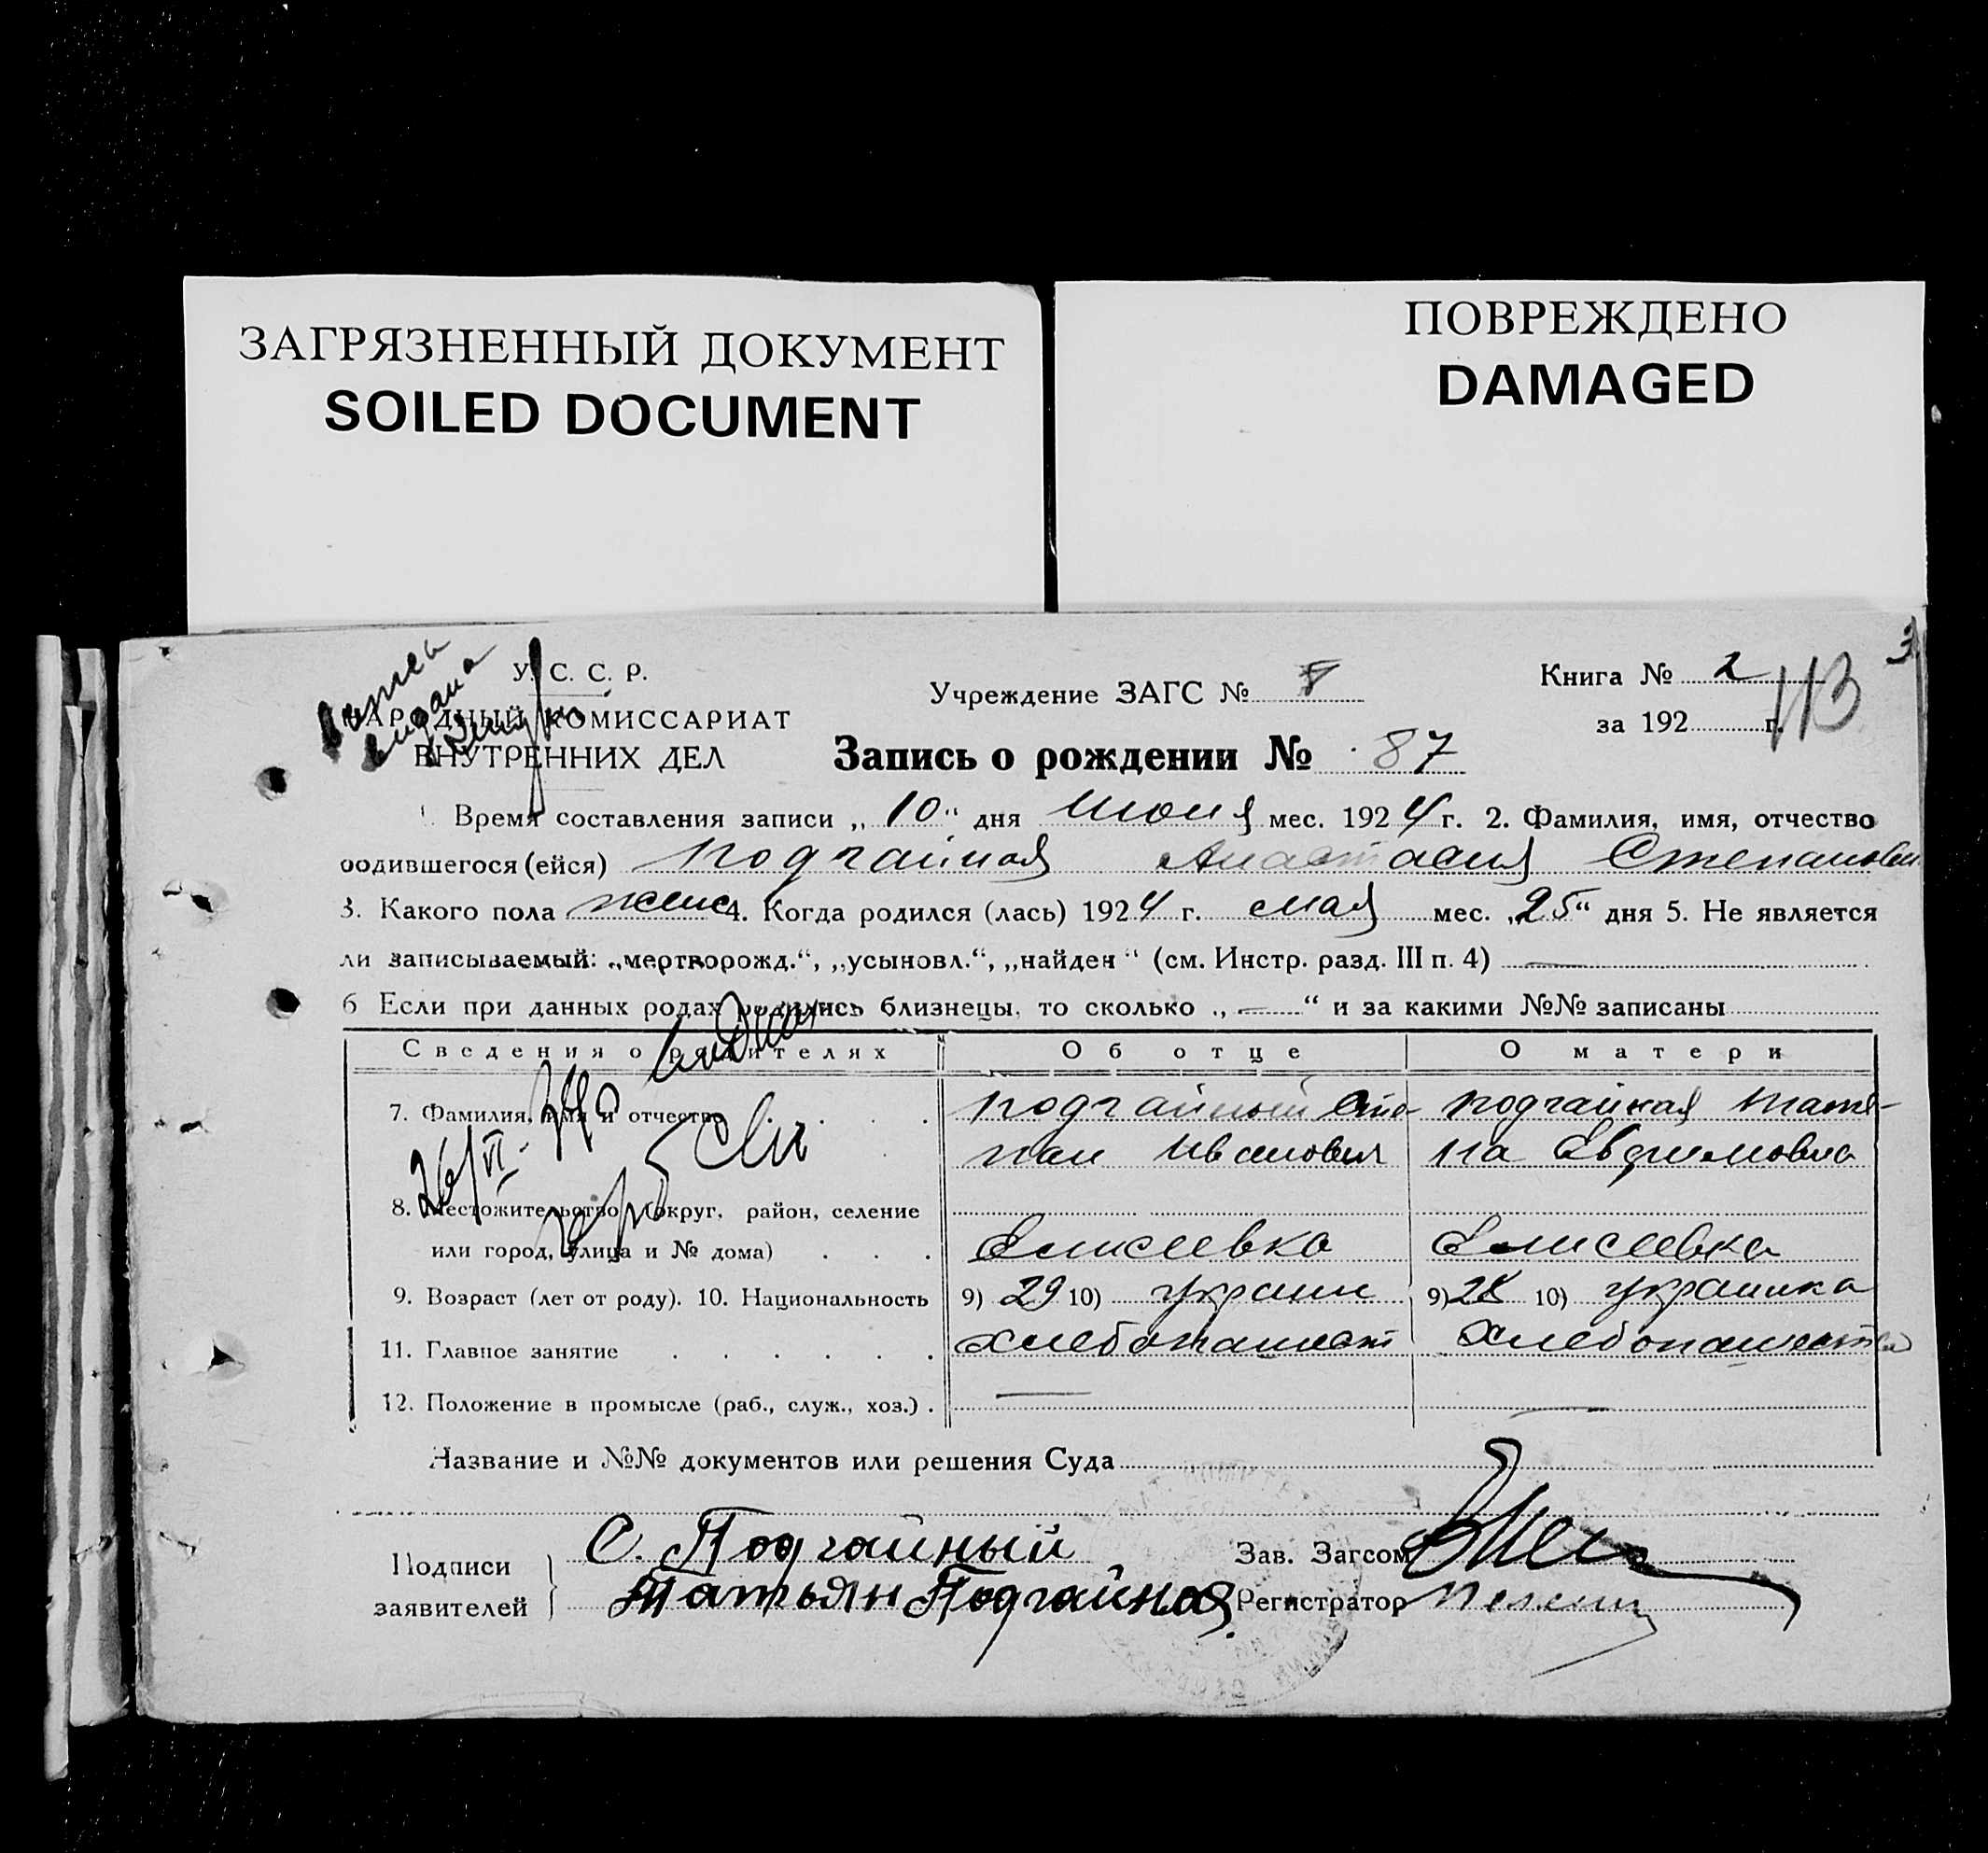 ЗАГРЯЗНЕННЫЙ ДОКУМЕНТ
SOILED DOCUMENT
ПОВРЕЖДЕНО
DAMAGED
У. С. С. Р.
НАРОДНЫЙ КОМИССАРИАТ
ВНУТРЕННИХ ДЕЛ
Учреждение ЗАГС №
Книга № 2
113
за 192 г.
Запись о рождении № 87
1. Время составления записи „10“ дня Июня мес. 1924 г. 2. Фамилия, имя, отчество
родившегося (ейся) Подгайная Анастасия Степановн
3. Какого пола женс 4. Когда родился (лась) 1924 г. мая мес. „25“ дня 5. Не является
ли записываемый: „мертворожд.“, „усыновл.“, „найден“ (см. Инстр. разд. III п. 4) —
6 Если при данных родах родились близнецы, то сколько „—“ и за какими №№ записаны
Сведения о родителях Об отце О матери
7. Фамилия, имя и отчество Подгайный Сте- Подгайная Татья-
пан Иванович на Евдимовна
8. Местожительство (округ, район, селение
или город, улица и № дома) Елисеевка Елисеевка
9. Возраст (лет от роду). 10. Национальность 9) 29 10) украин 9) 28 10) украинка
11. Главное занятие хлебопашест хлебопашество
12. Положение в промысле (раб., служ., хоз.) — —
Название и №№ документов или решения Суда
Подписи
заявителей
С. Подгайный
Татьян Подгайная
Зав. Загсом
Регистратор